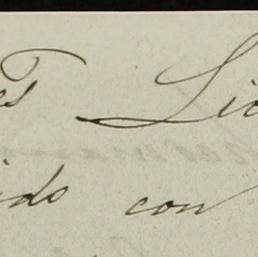 es Lic
ido con